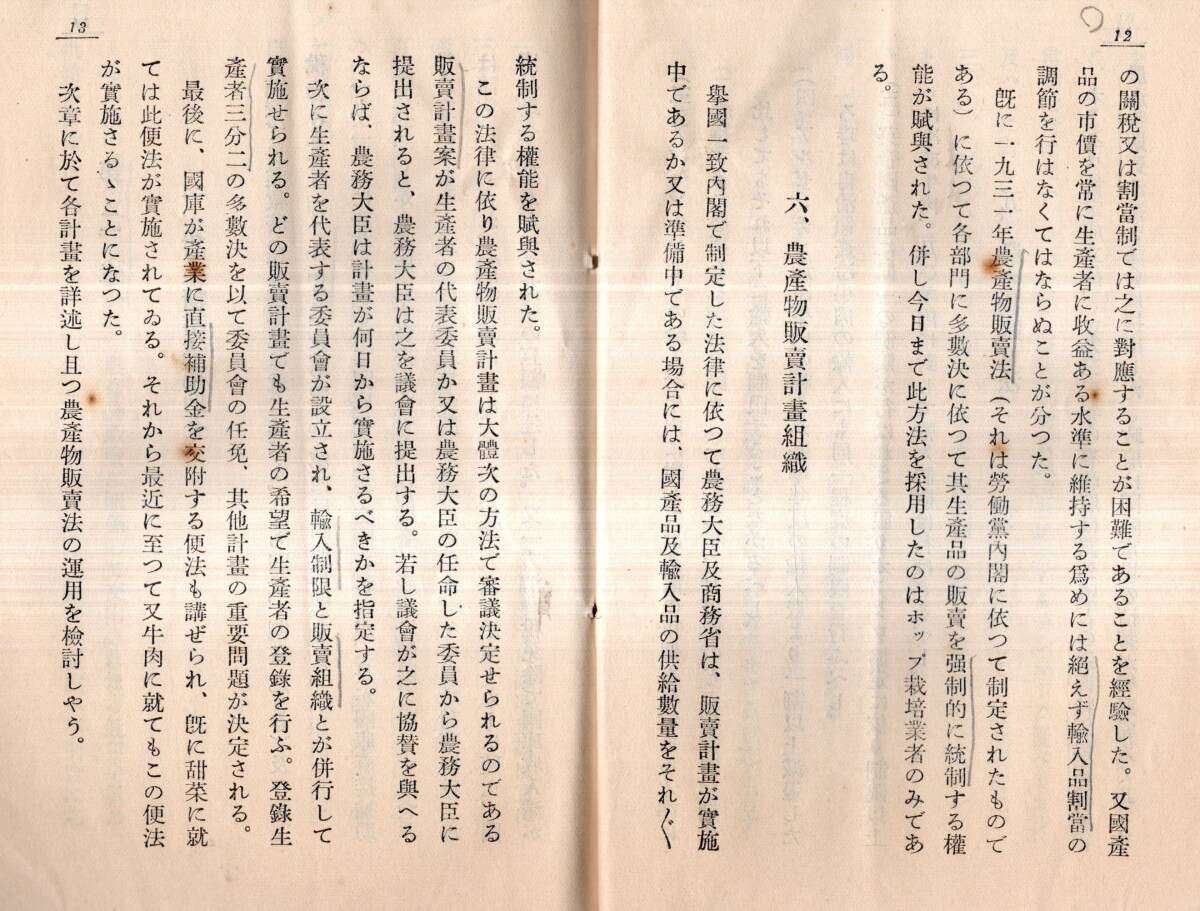 12
の關稅又は割當制では之に對應することが困難であることを經驗した。又國產
品の市價を常に生產者に收益ある水準に維持する爲めには絕えず輸入品割當の
調節を行はなくてはならぬことが分つた。
旣に一九三一年農產物販賣法(それは勞働黨內閣に依つて制定されたもので
ある)に依つて各部門に多數決に依つて其生產品の販賣を强制的に統制する權
能が賦與された。併し今日まで此方法を採用したのはホップ栽培業者のみであ
る。
六、農產物販賣計畫組織
擧國一致內閣で制定した法律に依つて農務大臣及商務省は、販賣計畫が實施
中であるか又は準備中である場合には、國產品及輸入品の供給數量をそれ〴〵
13
統制する權能を賦與された。
この法律に依り農產物販賣計畫は大體次の方法で審議決定せられるのである
販賣計畫案が生產者の代表委員か又は農務大臣の任命した委員から農務大臣に
提出されると、農務大臣は之を議會に提出する。若し議會が之に協贊を與へる
ならば、農務大臣は計畫が何日から實施さるべきかを指定する。
次に生產者を代表する委員會が設立され、輸入制限と販賣組織とが併行して
實施せられる。どの販賣計畫でも生產者の希望で生產者の登錄を行ふ。登錄生
產者三分二の多數決を以て委員會の任免、其他計畫の重要問題が決定される。
最後に、國庫が產業に直接補助金を交附する便法も講ぜられ、旣に甜菜に就
ては此便法が實施されてゐる。それから最近に至つて又牛肉に就てもこの便法
が實施さるゝことになつた。
次章に於て各計畫を詳述し且つ農產物販賣法の運用を檢討しやう。